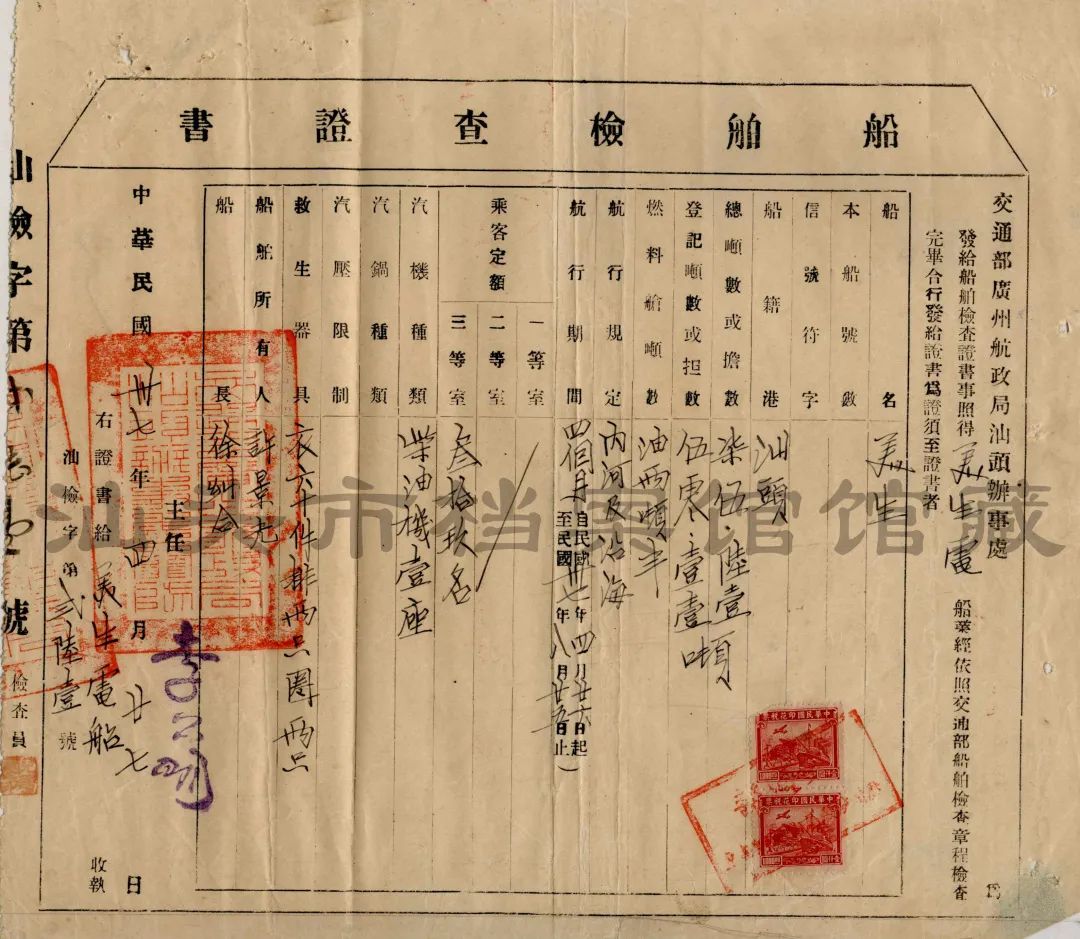 書證查檢舶船
交通部廣州航政局汕頭辦事處 爲
發給船舶檢查證書事照得美生電船業經依照交通部船舶檢查章程檢查
完畢合行發給證書爲證須至證書者
船名 美生
本船號數
信號符字
船籍港 汕頭
總噸數或擔數 柒伍·陸壹噸
登記噸數或担數 伍零·壹壹噸
燃料艙噸數 油兩噸半
航行規定 內河及沿海
航行期間 四個月 自民國卅七年四月廿六日起
至民國卅七年八月廿五日止
乘客定額
一等室
二等室
三等室 叁拾玖名
汽機種類 柴油機壹座
汽鍋種類
汽壓限制
救生器具 衣六十件 圈兩只
船舶所有人 許景光
船長 徐
主任
中華民國卅七年四月廿七日
右證書給美生電船 收執
汕檢字第 貳陸壹號
檢查員
汕檢字第 號
中華民國印花稅票
中華民國印花稅票
汕头市档案馆馆藏